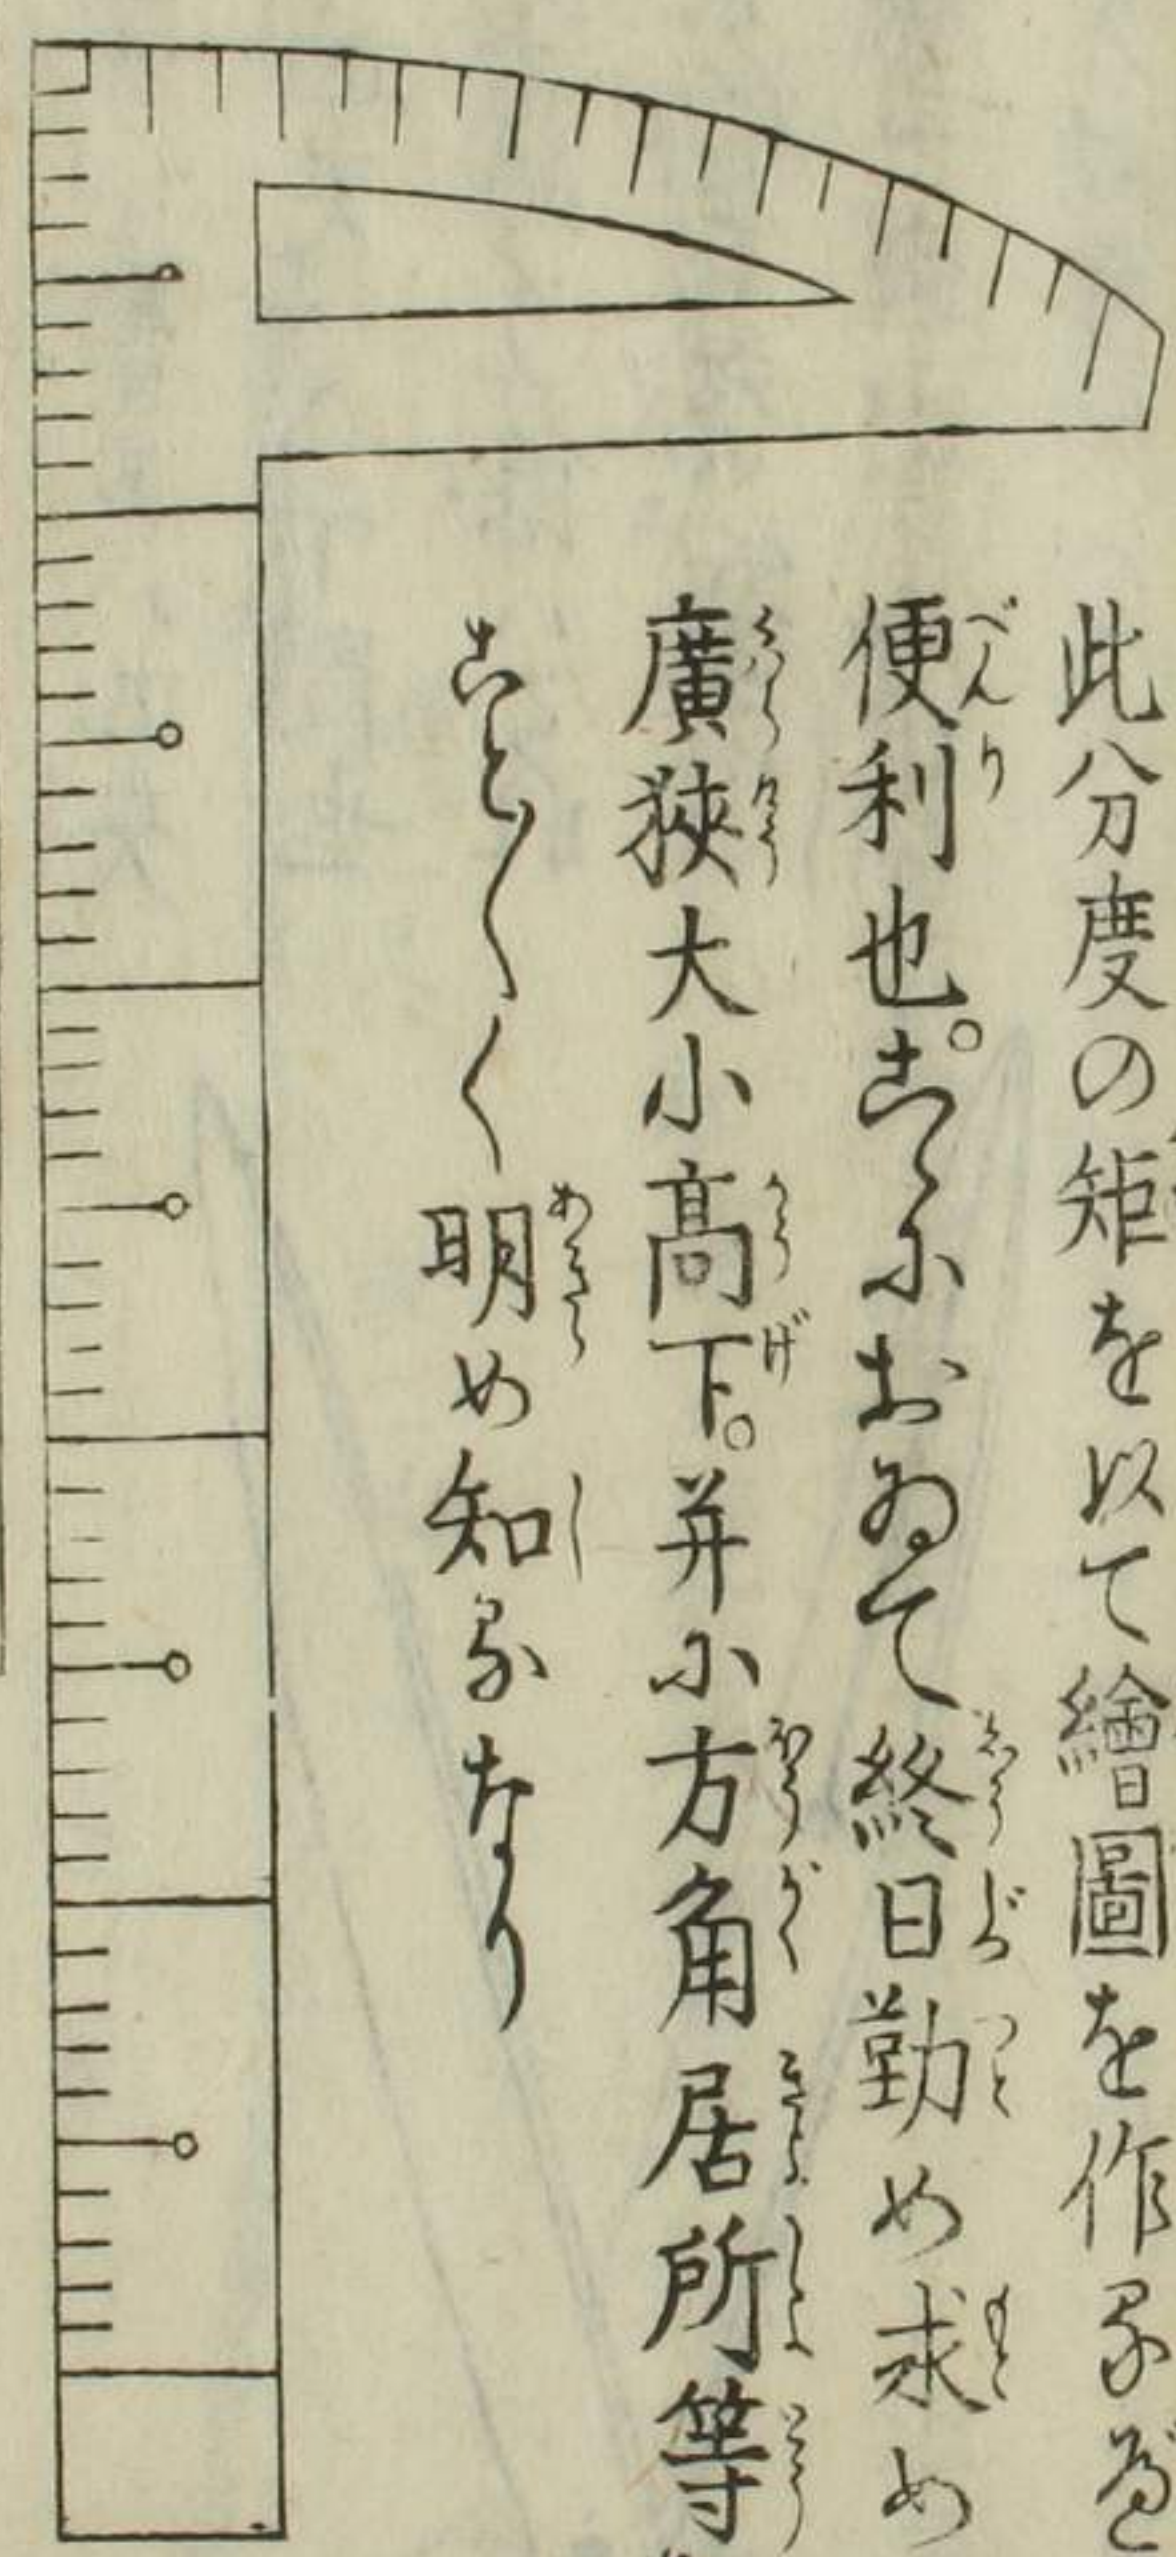 此分度の矩を以て繪圖を作るを
便利也。こゝにおゐて終日勤め求め
廣狹大小高下。并に方角居所等
こと〴〵く明め知るなり